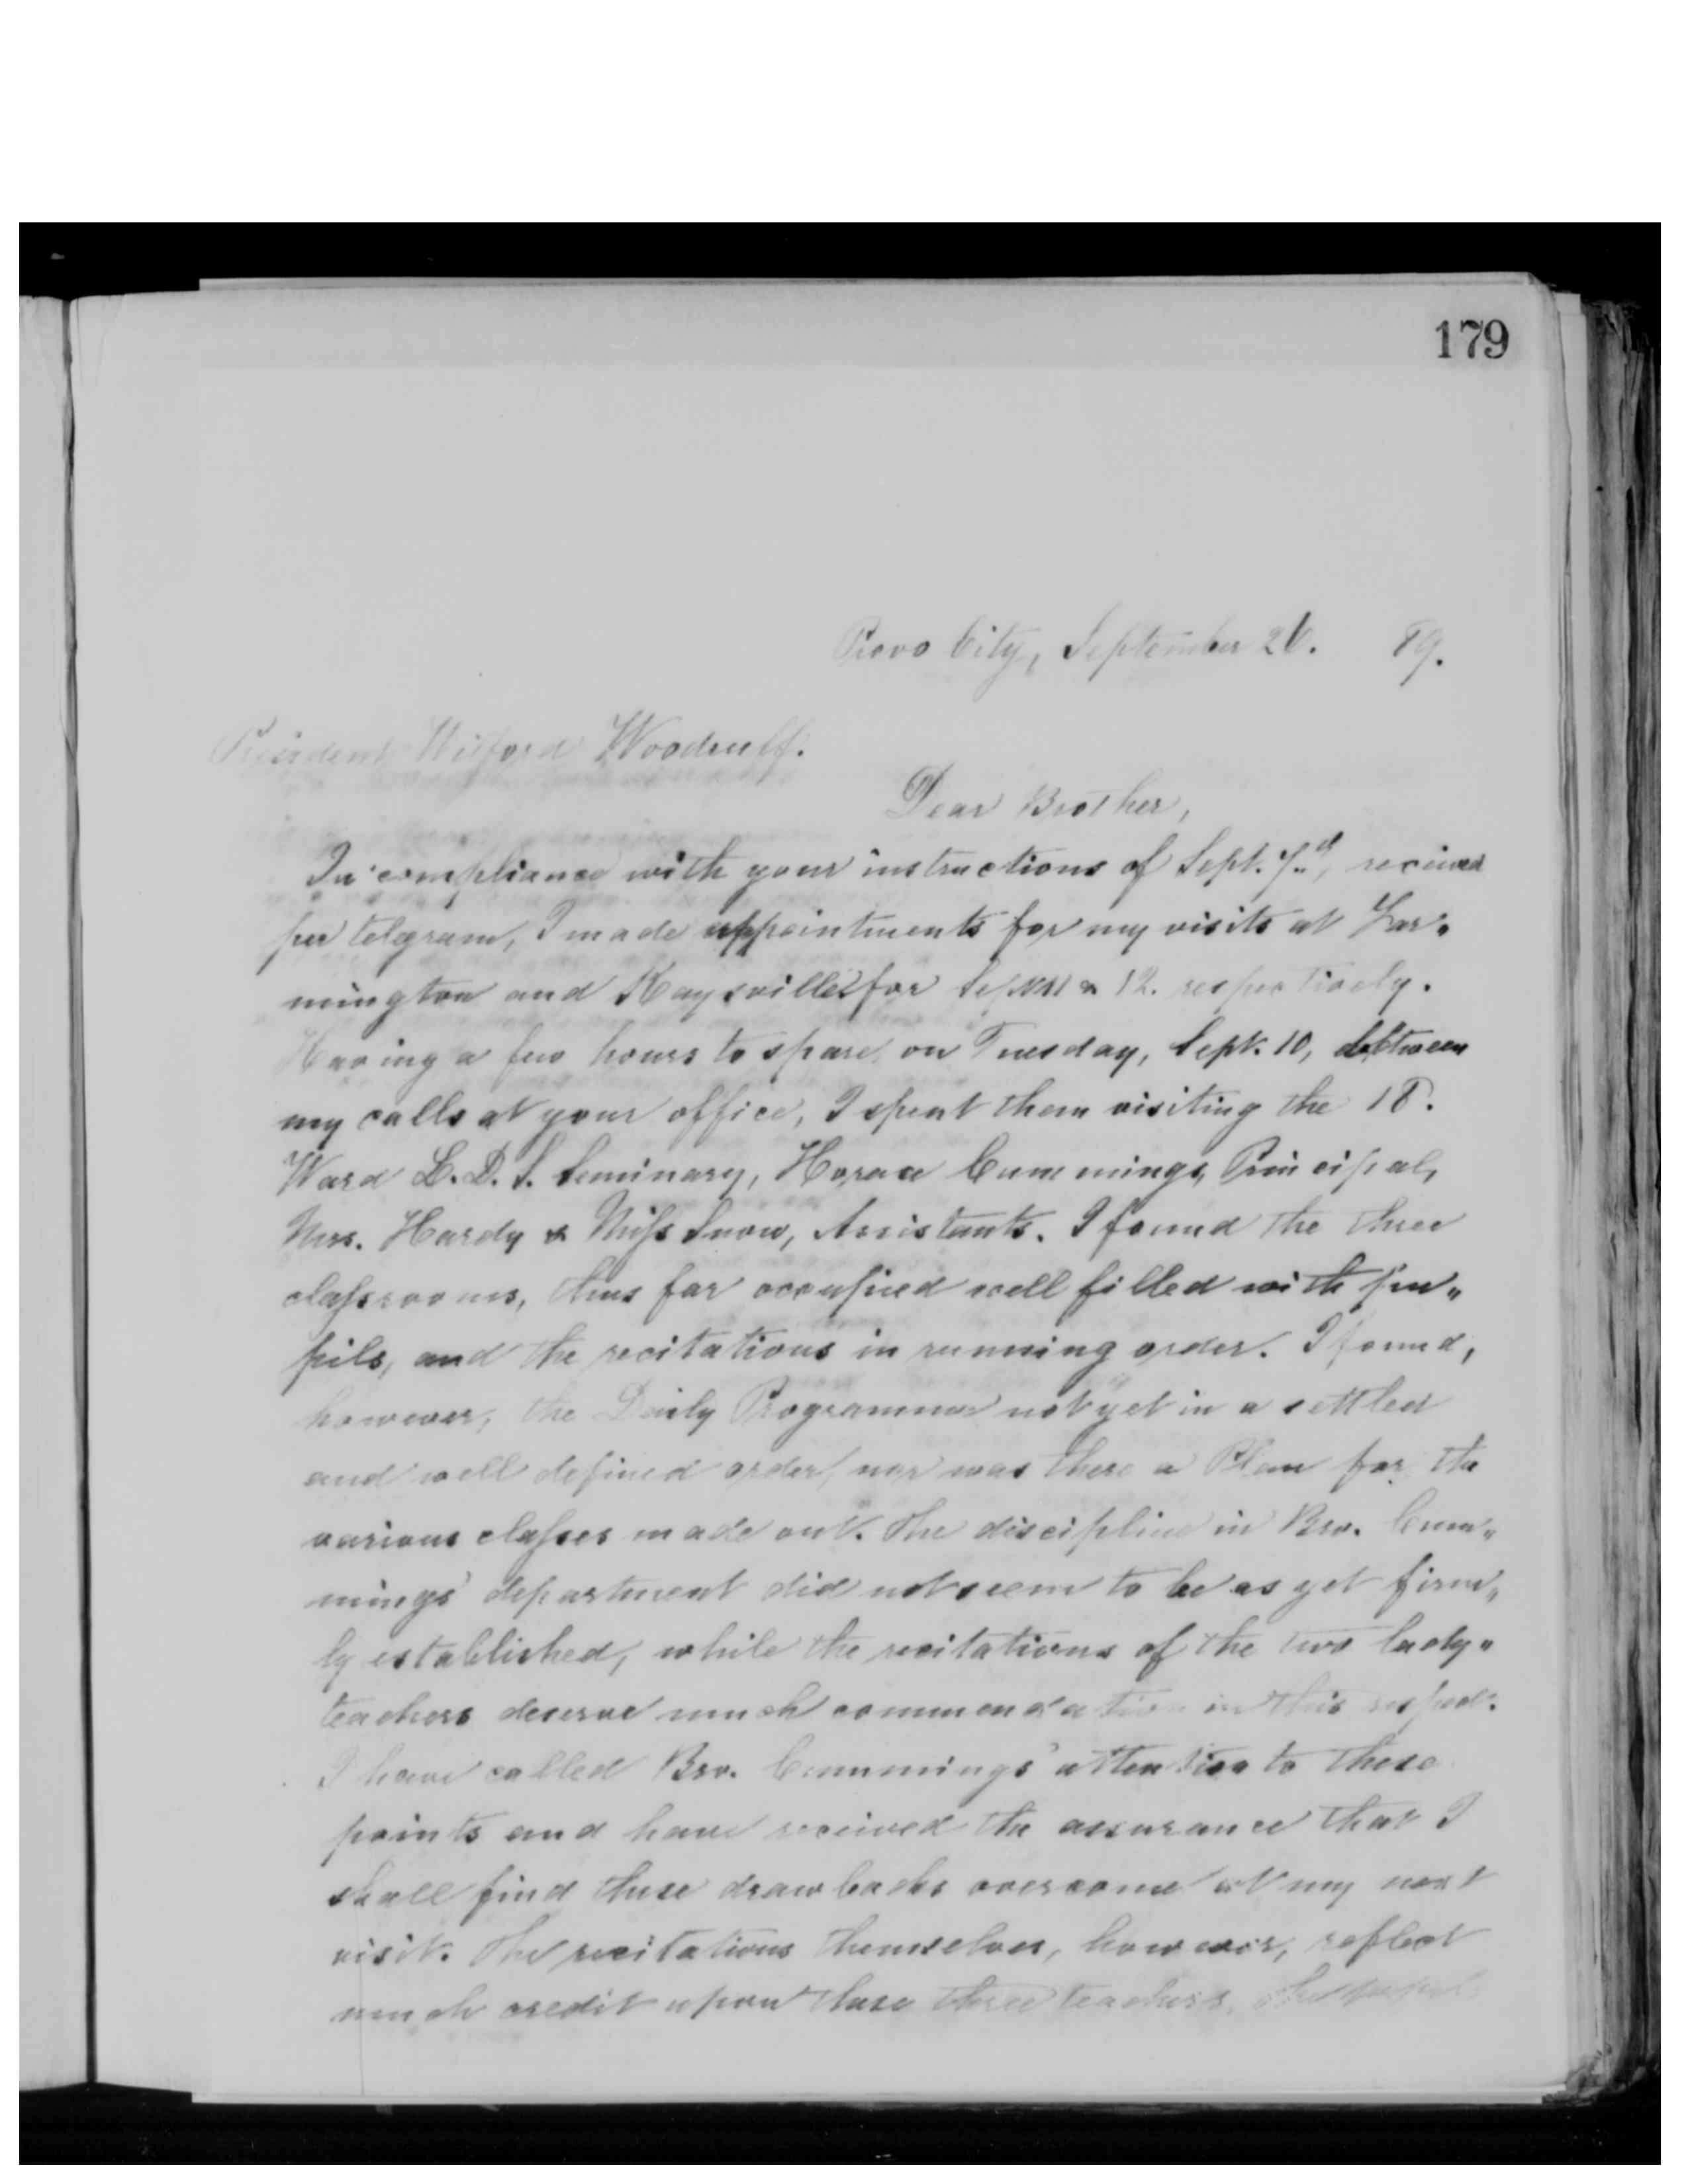 179
Provo City, September 26. 89.
President Wilford Woodruff.
Dear Brother,
In compliance with your instructions of Sept. 7.d, received
per telegram, I made appointments for my visits at Far„
mington and Kaysville for Sept. 11 & 12. respectively.
Having a few hours to spare on Tuesday, Sept. 10, between
my calls at your office, I spent them visiting the 18.
Ward L.D.S. Seminary, Horace Cummings, Principal,
Mrs. Hardy & Miss Snow, Assistants. I found the three
classrooms, thus far occupied well filled with pu„
pils, and the recitations in running order. I found,
however, the Daily Programme not yet in a settled
and well defined order, nor was there a Plan for the
various classes made out. The discipline in Bro. Cum„
mings' department did not seem to be as yet firm„
ly established, while the recitations of the two lady„
teachers deserve much commendation in this respect.
I have called Bro. Cummings' attention to these
points and have received the assurance that I
shall find these drawbacks overcome at my next
visit. The recitations themselves, however, reflect
much credit upon these three teachers.